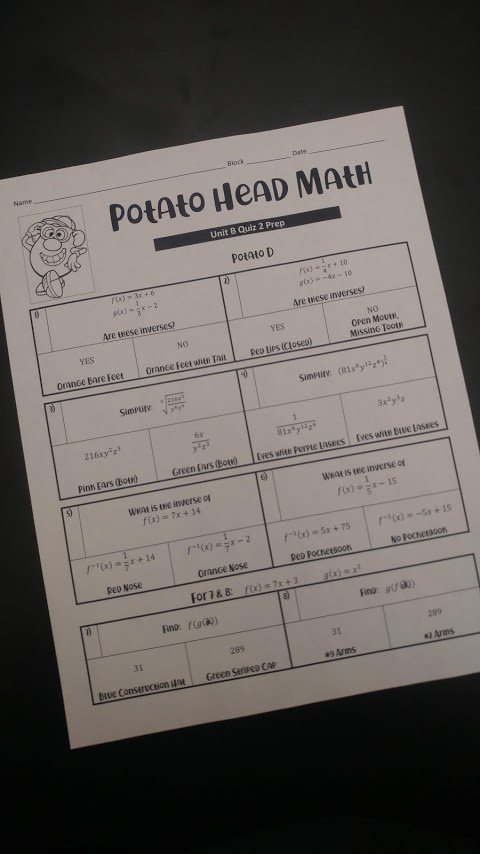 Name ____ Block ____ Date ____
Potato Head Math
Unit B Quiz 2 Prep
Potato D
1) f(x) = 3x + 6
g(x) = 1/3 x − 2
Are these inverses?
YES
Orange Bare Feet
NO
Orange Feet with Tail
2) f(x) = 1/4 x + 10
g(x) = −4x − 10
Are these inverses?
YES
Red Lips (Closed)
NO
Open Mouth,
Missing Tooth
3) Simplify:
216xy²z³
Pink Ears (Both)
6x / y²z³
Green Ears (Both)
4) Simplify: (81x⁸y¹²z⁴)^(1/4)
1 / 81x⁸y¹²z⁴
Eyes with Purple Lashes
3x²y³z
Eyes with Blue Lashes
5) What is the inverse of
f(x) = 7x + 14
f⁻¹(x) = 1/7 x + 14
Red Nose
f⁻¹(x) = 1/7 x − 2
Orange Nose
6) What is the inverse of
f(x) = 1/5 x − 15
f⁻¹(x) = 5x + 75
Red Pocketbook
f⁻¹(x) = −5x + 15
No Pocketbook
For 7 & 8: f(x) = 7x + 3 g(x) = x²
7) Find: f(g(2))
31
Blue Construction Hat
289
Green Striped Cap
8) Find: g(f(2))
31
#9 Arms
289
#2 Arms